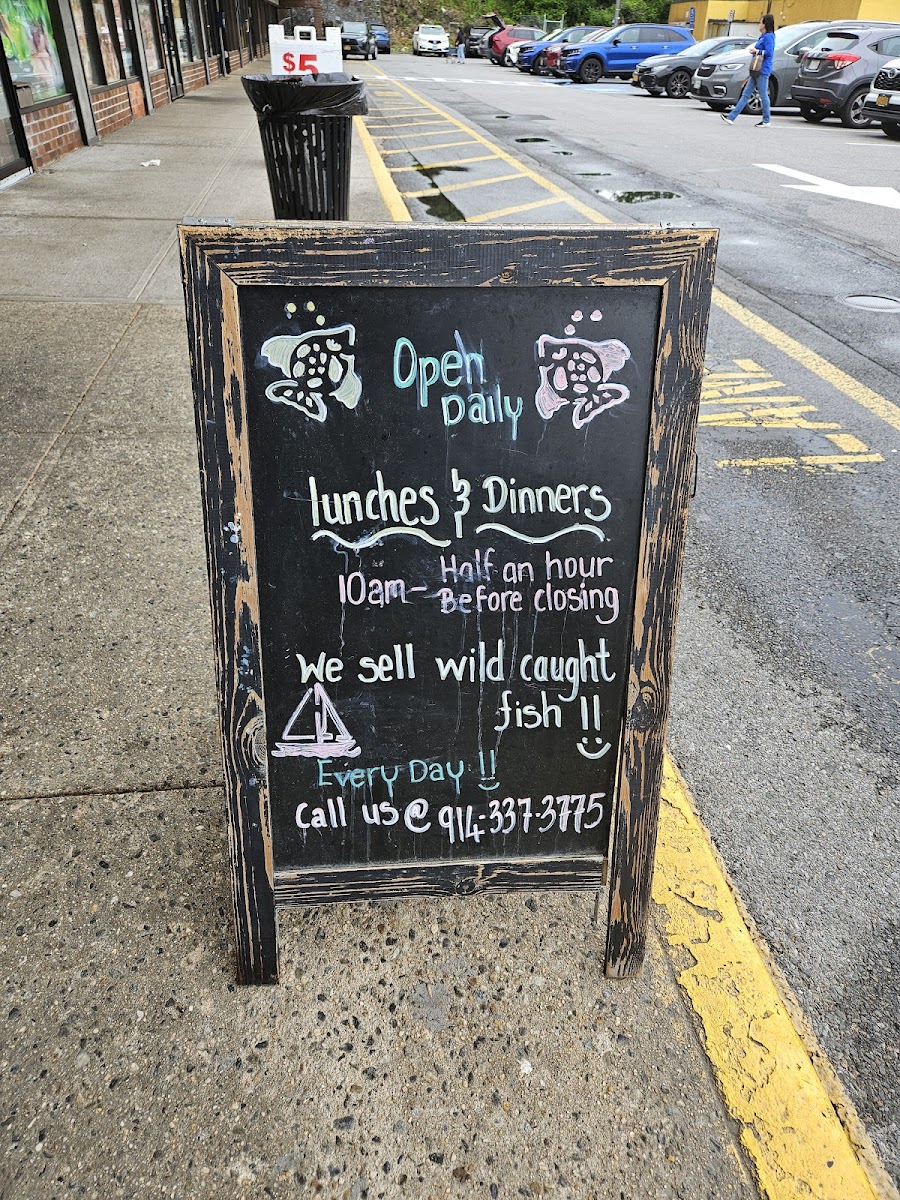 $5
Open
Daily
lunches & Dinners
10am - Half an hour
Before closing
We sell wild caught
fish !!
Every Day !!
Call us @ 914-337-3775